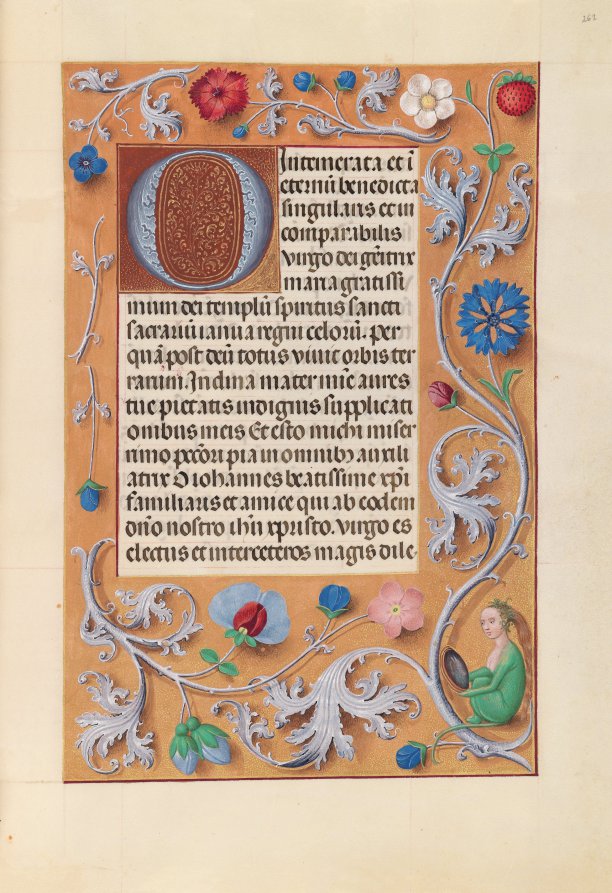 262
O Intemerata et ī
eternū benedicta
singularis et in
comparabilis
virgo dei genitrix
maria gratissi
mum dei templū spiritus sancti
sacrariū ianua regni celorū. per
quā post deū totus vivit orbis ter
rarum. Inclina mater mīe aures
tue pietatis indignis supplicati
onibus meis Et esto michi miser
rimo pctōri pia in omnibꝫ auxili
atrix O iohannes beatissime xpi
familiaris et amice qui ab eodem
dnō nostro ihū xpisto. virgo es
electus et inter ceteros magis dile-